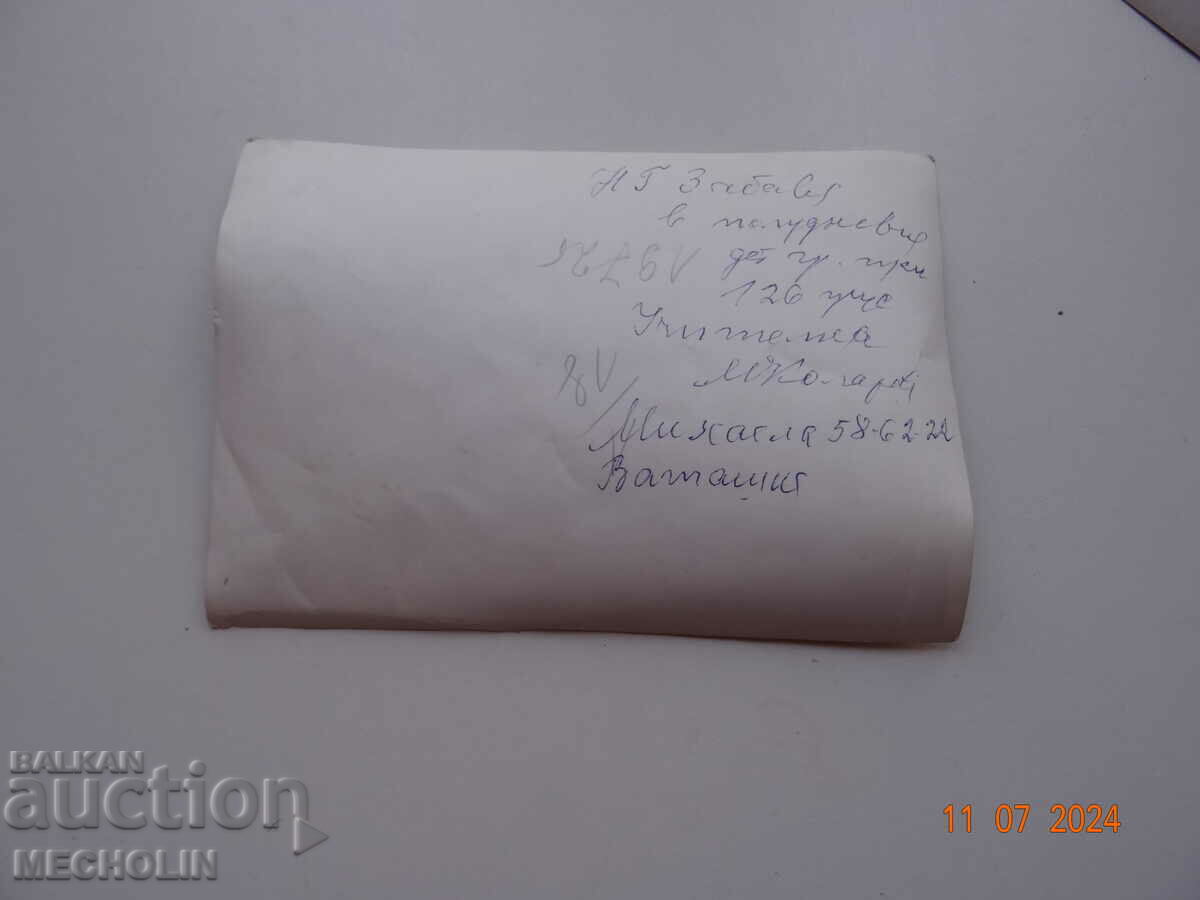 НГ Забава
в полудневна
дет гр. при
126 учус
1972г
Учителка
М Коларова
Михаела 58-62-22
Ваташка
BALKAN
auction
MECHOLIN
11 07 2024